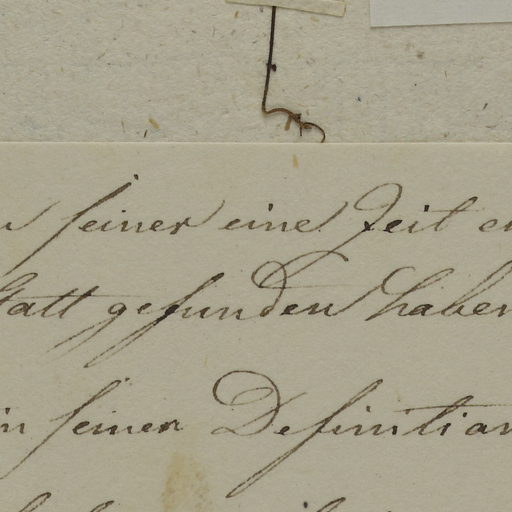 seiner eine Zeit
statt gefunden haben
in seiner Definition